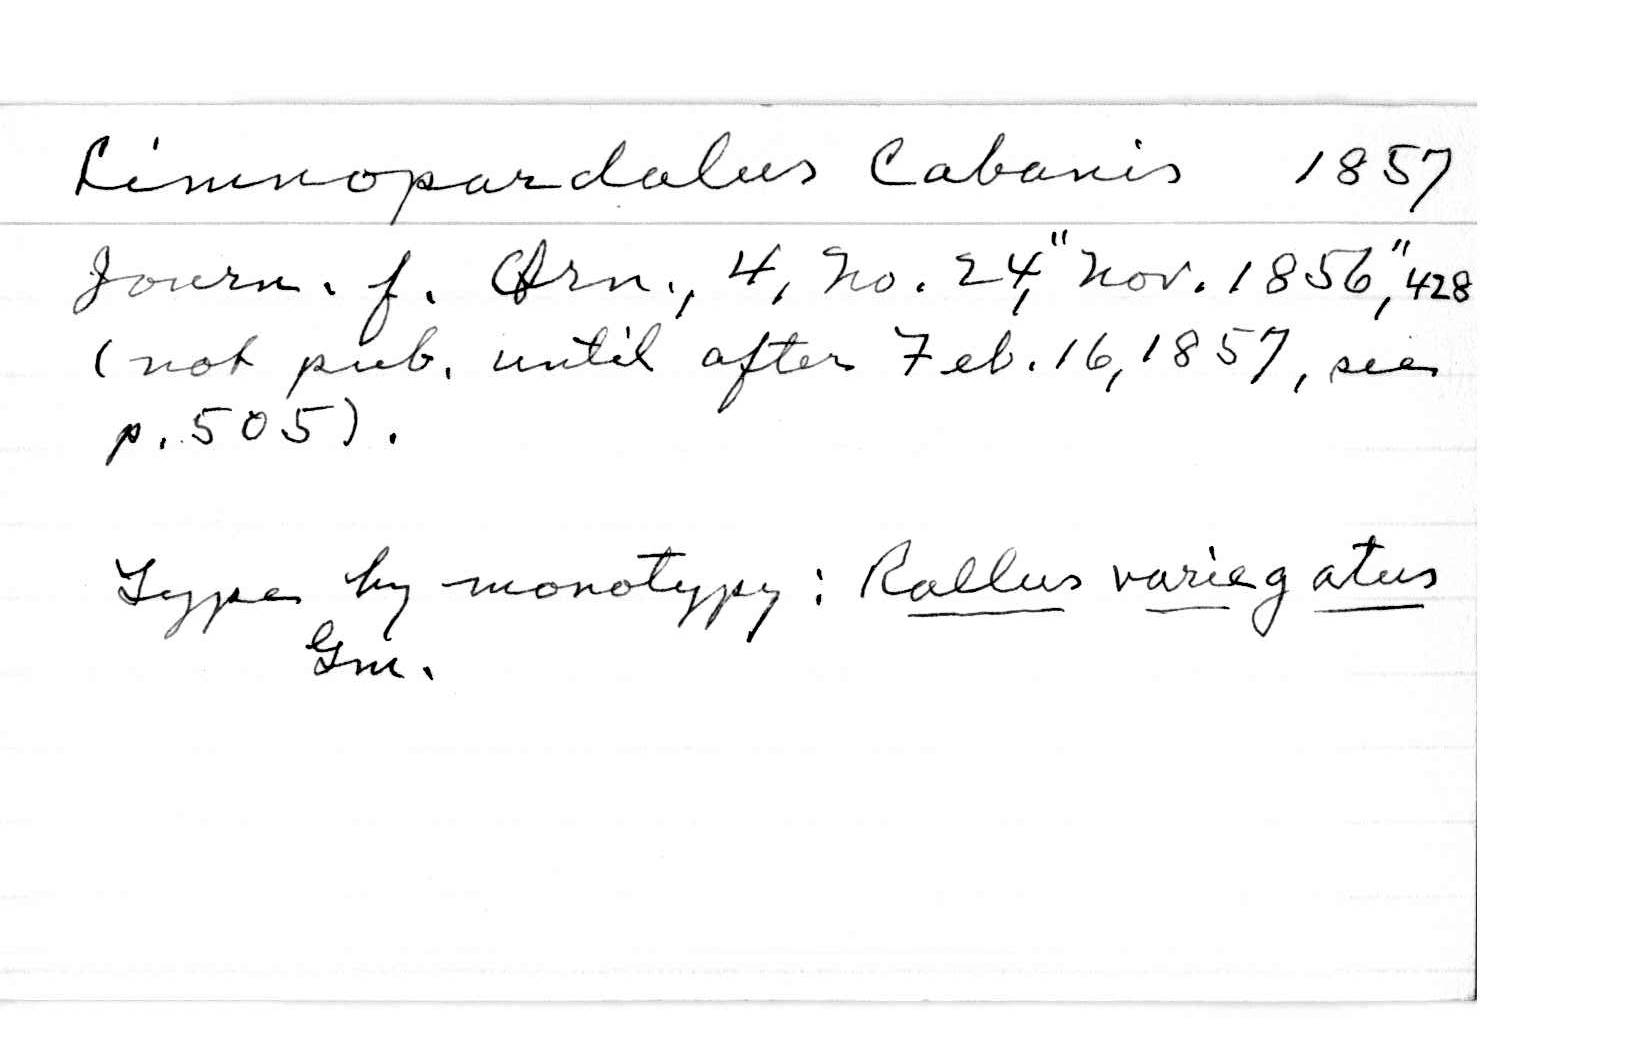 Limnopardalus Cabanis 1857
Journ. f. Orn., 4, No. 24, "Nov. 1856", 428
(not pub. until after Feb. 16, 1857, see
p. 505).
Type by monotypy : Rallus variegatus
Gm.